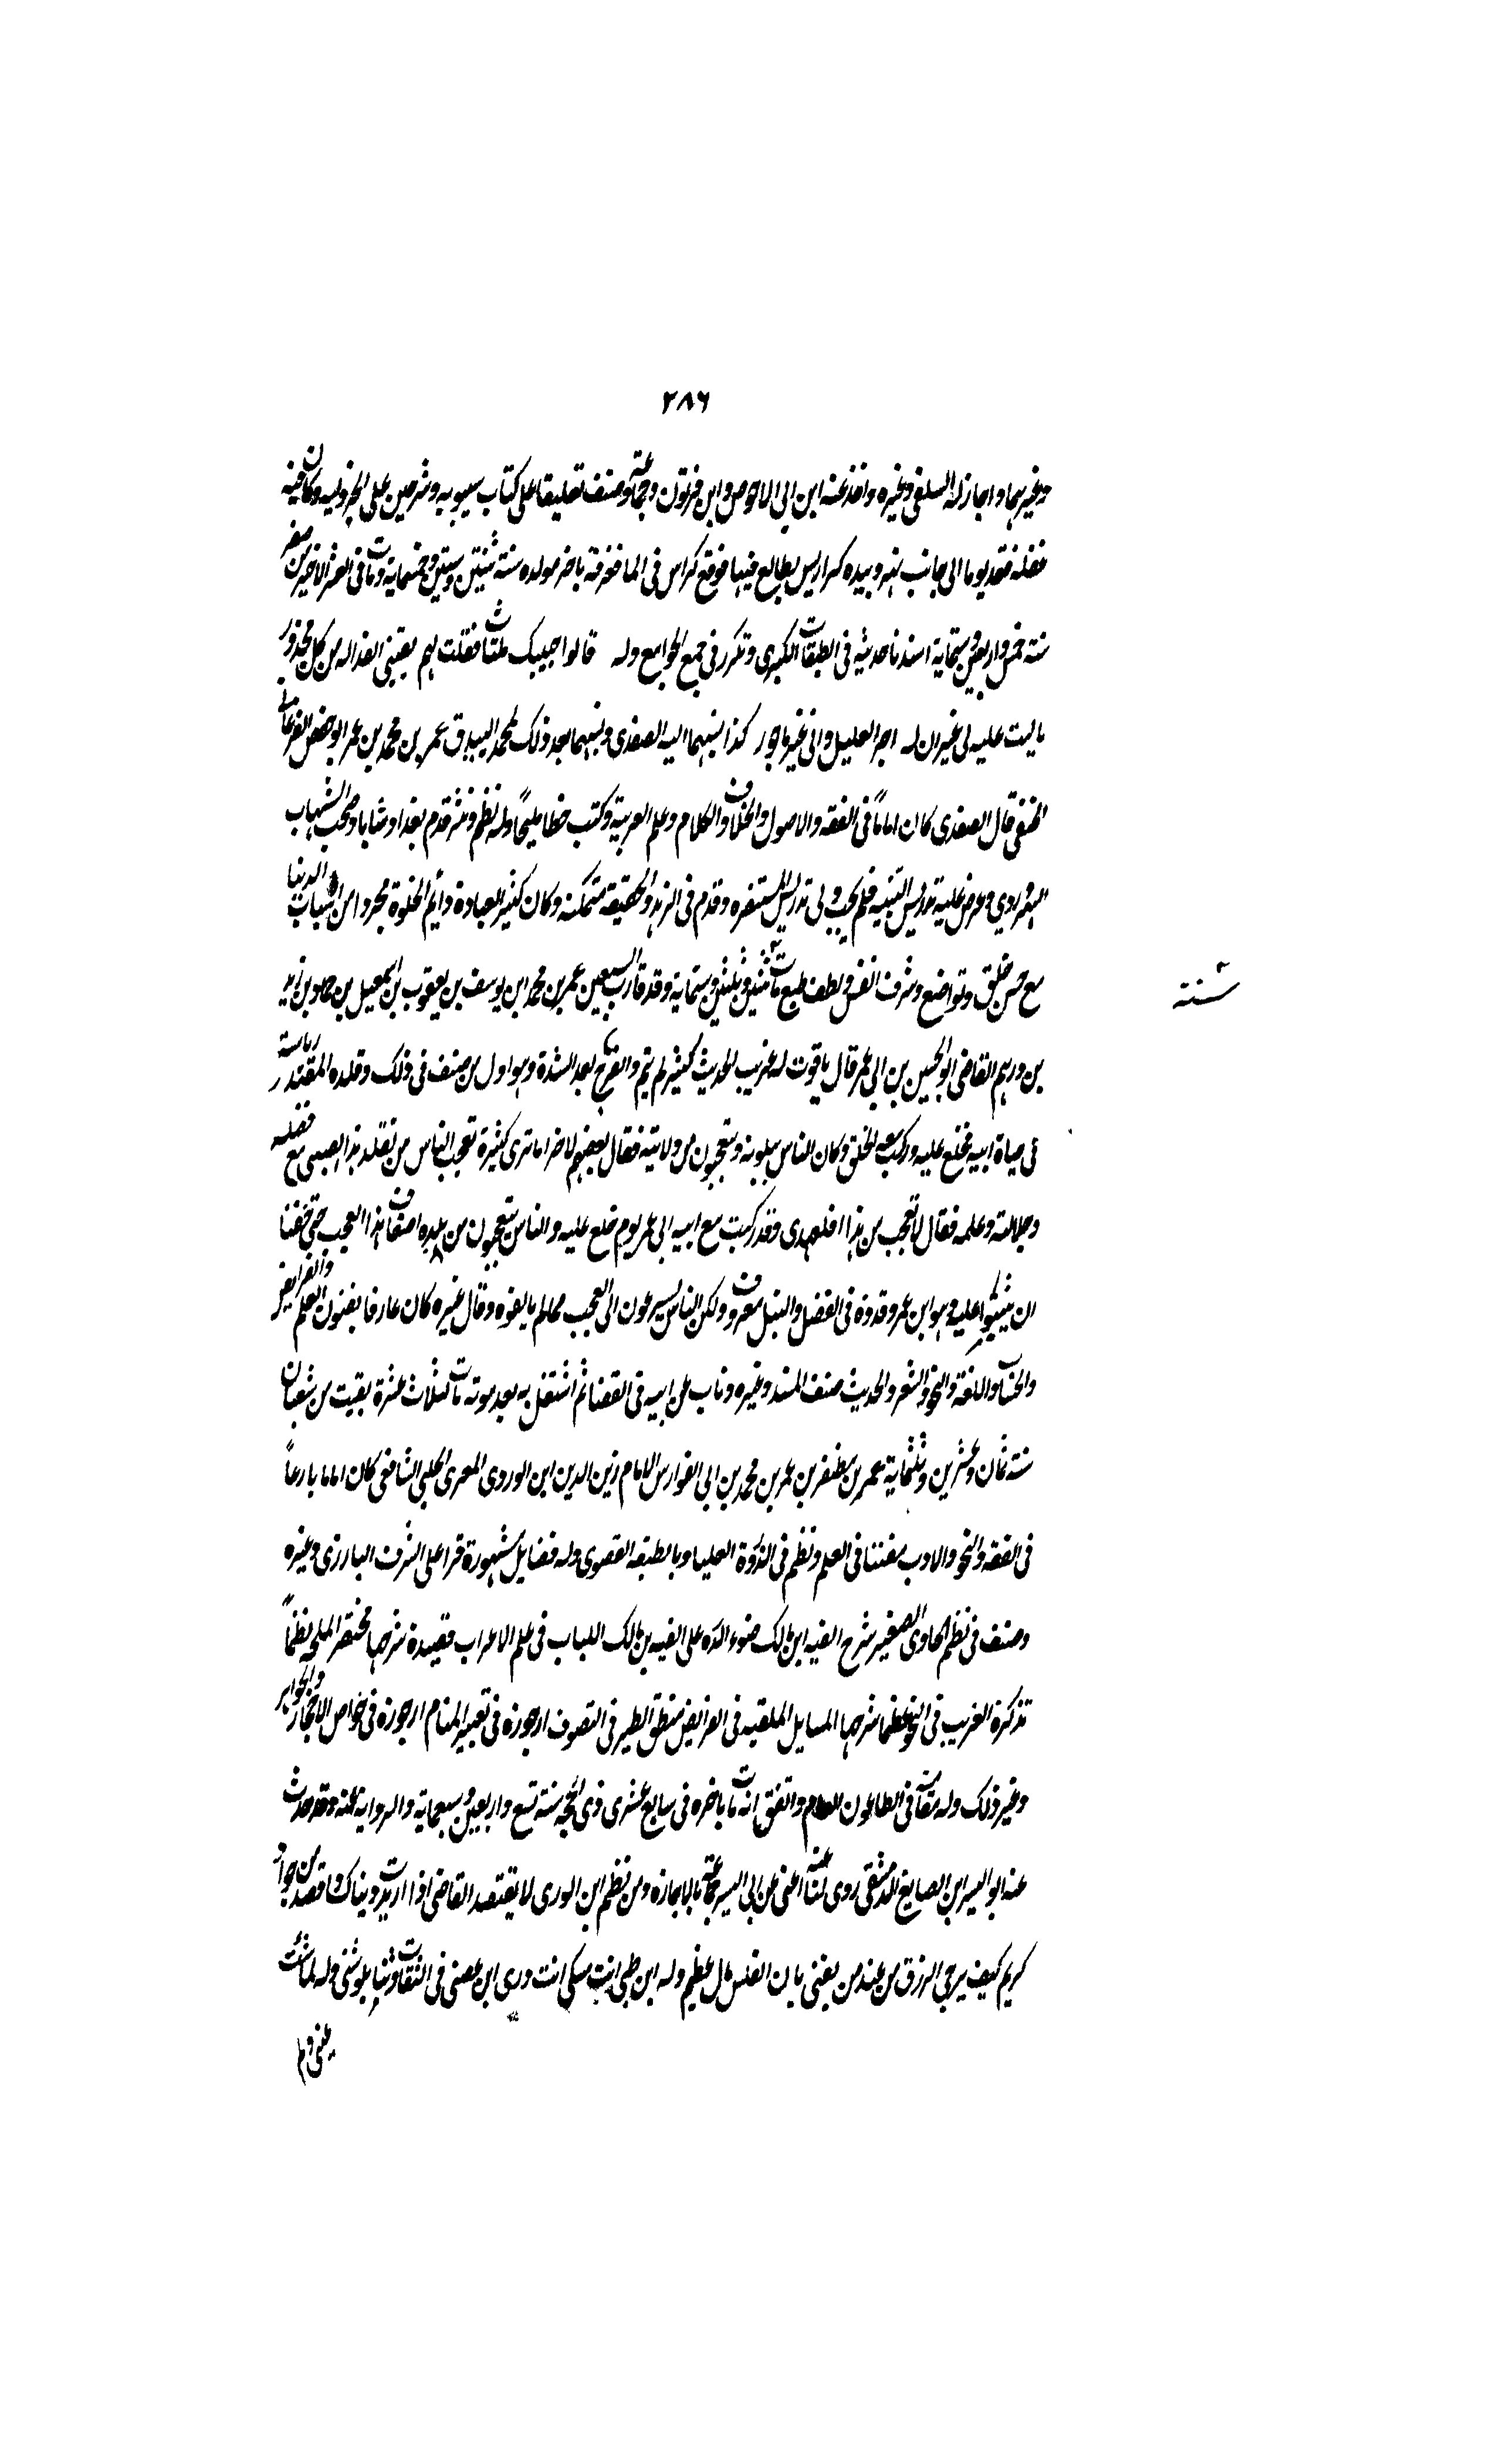 ٢٨٦
وغيرهما واجاز له السلفى وغيره واخذ عنه ابن ابى الاحوص وابن فرتون وجماعة وصنف تعليقا على كتاب سيبويه وشرحين على الجزوليه وكان فيه
غفله فقعد يوما الى جانب نهر وبيده كراريس يطالع فيها فوقع كراس فى الما فغرفه باخر مولده سنة ثنتين وستين وخمسماية ومات فى العشر الاخير من صفر
سنة خمس واربعين وستماية اسندنا حديثه فى الطبقات الكبرى وتكرر فى جمع الجوامع وله قالوا حبيبك ملتاث فقلت لهم نفسى الفدا له من كل محذور
يا ليت علته لى غير ان له اجر العليل وانى غير ماجور كذا نسبهما اليه الصفدى ونسبهما بعد ذلك لمحمد البيدق عمر بن محمد بن عمر ابو حفص الفرغانى
الحنفى قال الصفدى كان اماماً فى الفقه والاصول والخلاف والكلام وعلم العربية وكتب خطا مليحاً وله نظم ونثر قدم بغداد شابا وصحب الشهاب
السهروردى وعرض عليه تدريس التتشيه فلم يجب وولى تدريس المستنصره وقدم فى الزهد والحقيقة متمكنه وكان كثير العبادة دائم الخلوة مجردا من اسباب الدنيا
سنة
مع حسن خلق وتواضع وشرف انفس ولطف طبع مات ثنتين وثلثين وستماية وقد قارب السبعين عمر بن محمد ابن يوسف بن يعقوب بن اسمعيل بن حماد بن زيد
بن درهم القاضى ابو الحسين بن ابى عمر قال ياقوت له غريب الحديث كثير لم يتم والفرج بعد الشدة وهو اول من صنف فى ذلك وقلده المقتدر رياسة
فى حياة ابيه فخلع عليه وركب معه الخلق وكان الناس يثلبونه ويتعجبون من ولايته فقال بعضهم لاخر اما ترى كثيرة تعجب الناس من تقلد هذا الصبى مع فضله
وجلالته وعلمه فقال لا تعجب من هذا فلعهدى وقد ركبت مع ابيه ابى عمر يوم خلع عليه والناس يتعجبون من تقلده اضعاف هذا العجب حتى خفنا
ان يثبوا عليه وهو ابن عمر وقدوة فى الفضل والنبل معروف ولكن الناس يسرعون الى العجب مما لم يالفوه وقال غيره كان عارفا بفنون العلم والفرايض
والحساب واللغة والنحو والشعر والحديث صنف المسند وغيره وناب عن ابيه فى القضا ثم اشتغل به بعد موته مات لثلاث عشرة بقيت من شعبان
سنة ثمان وعشرين وثلثماية عمر بن مظفر بن عمر بن محمد بن ابى الفوارس الامام زين الدين ابن الوردى المعرى الحلبى الشافعى كان اماما بارعاً
فى الفقه والنحو والادب مفننا فى العلم ونظم فى الذروة العليا وبالطبقه القصوى وله فضايل مشهورة قرا على الشرف البارزى وغيره
وصنف فى نظم الحاوى الصغير شرح الفيه ابن مالك ضوء الدره على الفيه بن مالك اللباب فى علم الاعراب قصيدة شرحها مختصر الملحه نظماً
تذكرة الغريب فى النحو نظما شرحها المسايل الملقبه فى الفرايض منطق الطير فى التصوف ارجوزة فى تعبير المنام ارجوزة فى خواص الاحجار والجواهر
وغير ذلك وله مقامات فى الطاعون العام واتفق انه مات باخره فى سابع عشرى ذى الحجه سنة تسع واربعين وسبعماية والرواية عنه وقد حدث
عنه ابو اليسر ابن الصايغ الدمشقى روى لنا عنه اعنى عن ابى اليسر جماعة بالاجازه ومن نظم ابن الوردى لا يقتصد القاضى اذا ادبرت دنياك واقصد من جواد
كريم كيف يرجى الرزق من عند من يفتى بان الفلس مال عظيم وله
يمنى ولم